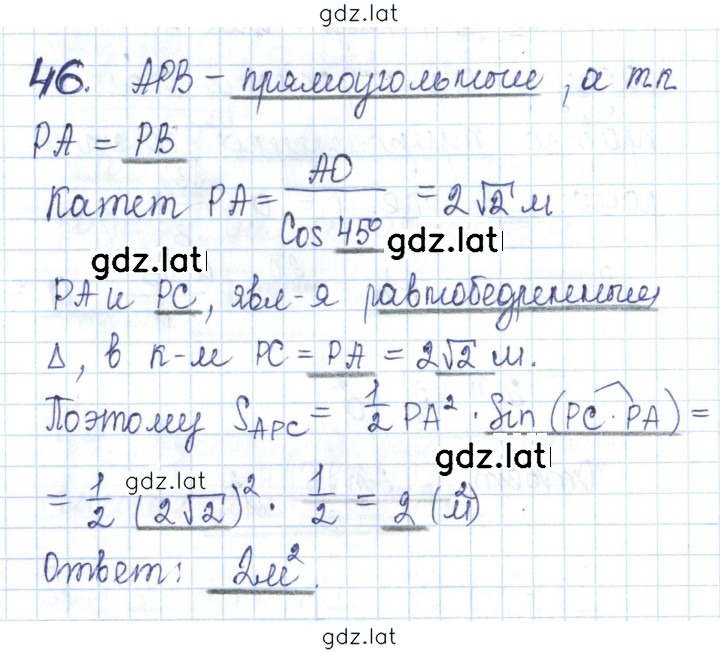 gdz.lat
46. APB – прямоугольные, а тк
PA = PB
Катет PA = AO / Cos 45° = 2√2 м
gdz.lat gdz.lat
PA и PC, явл-я равнобедренные
Δ, в к-м PC = PA = 2√2 м.
Поэтому S_APC = 1/2 PA² · Sin (PC · PA) =
gdz.lat gdz.lat
= 1/2 (2√2)² · 1/2 = 2 (м²)
Ответ: 2м².
gdz.lat